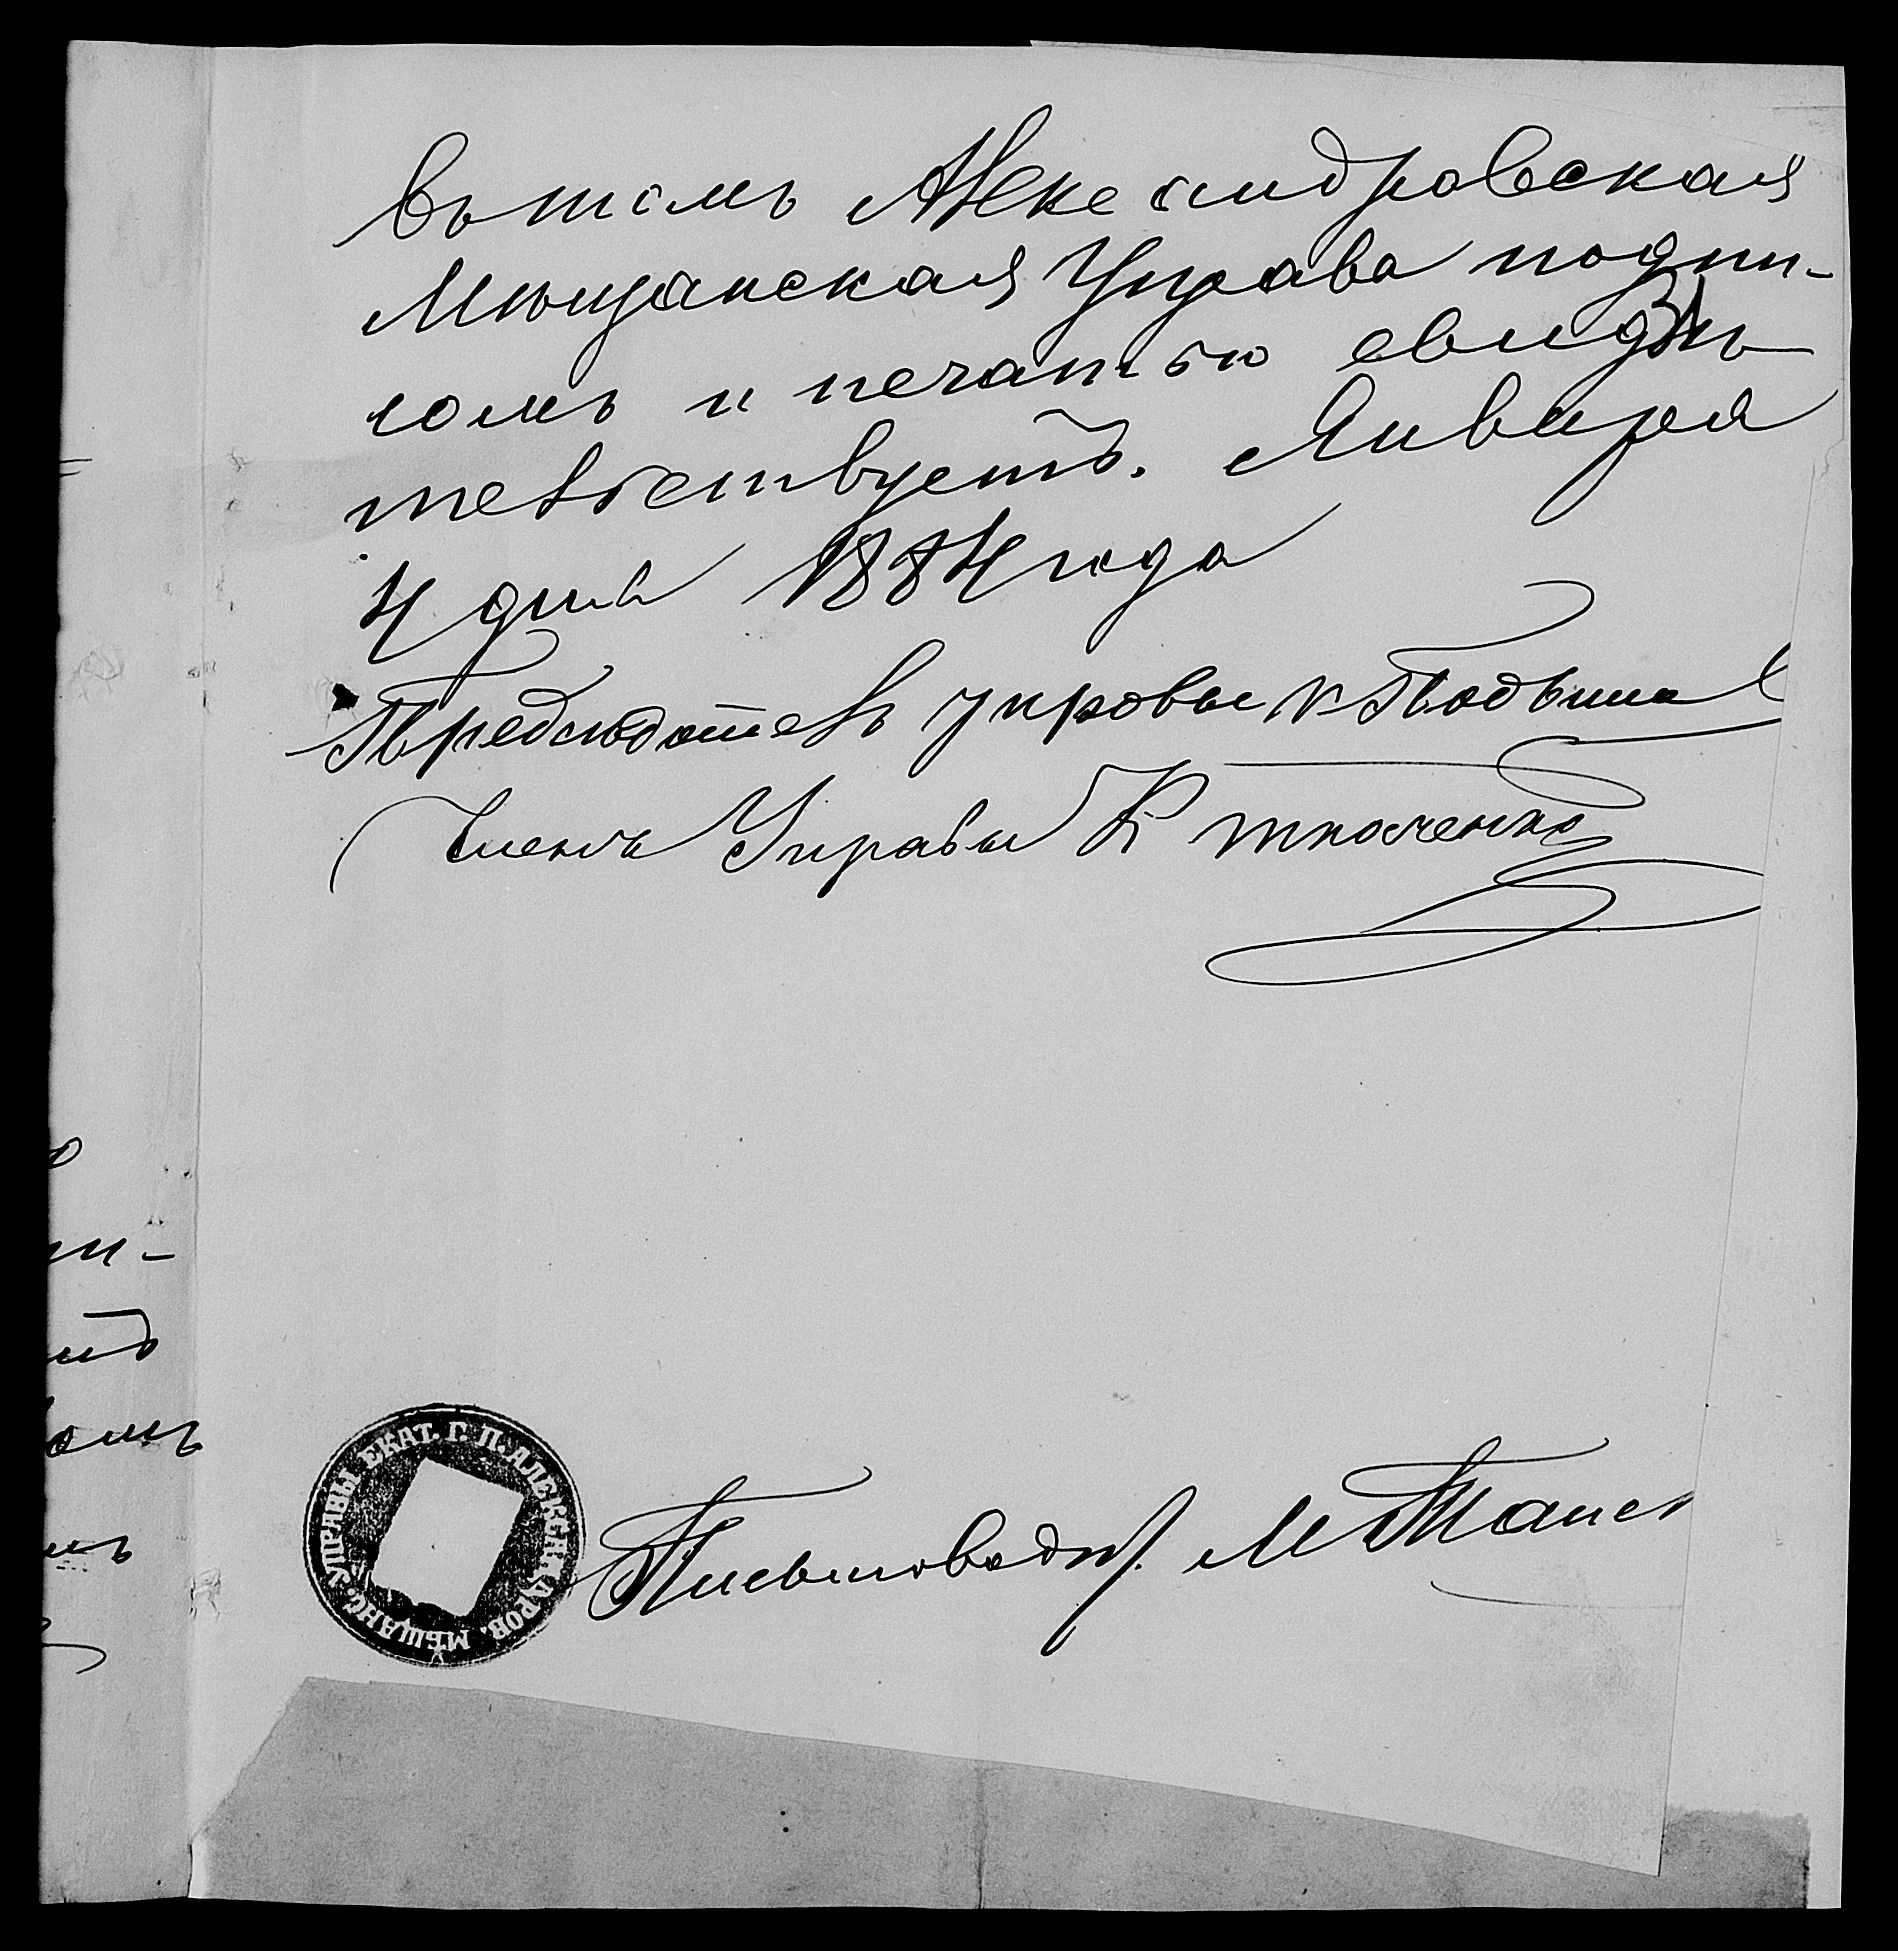 Въ томъ Александровская
Мѣщанская Управа подпи-
сомъ и печатью свидѣ-
тельствуетъ. Января
4 дня 1884 года
Предсѣдатель управы
Членъ Управы К Ткаченко
УПРАВЫ ЕКАТ. Г. П. АЛЕКСАНДРОВ. МѢЩАНС.
Письмоводит. М